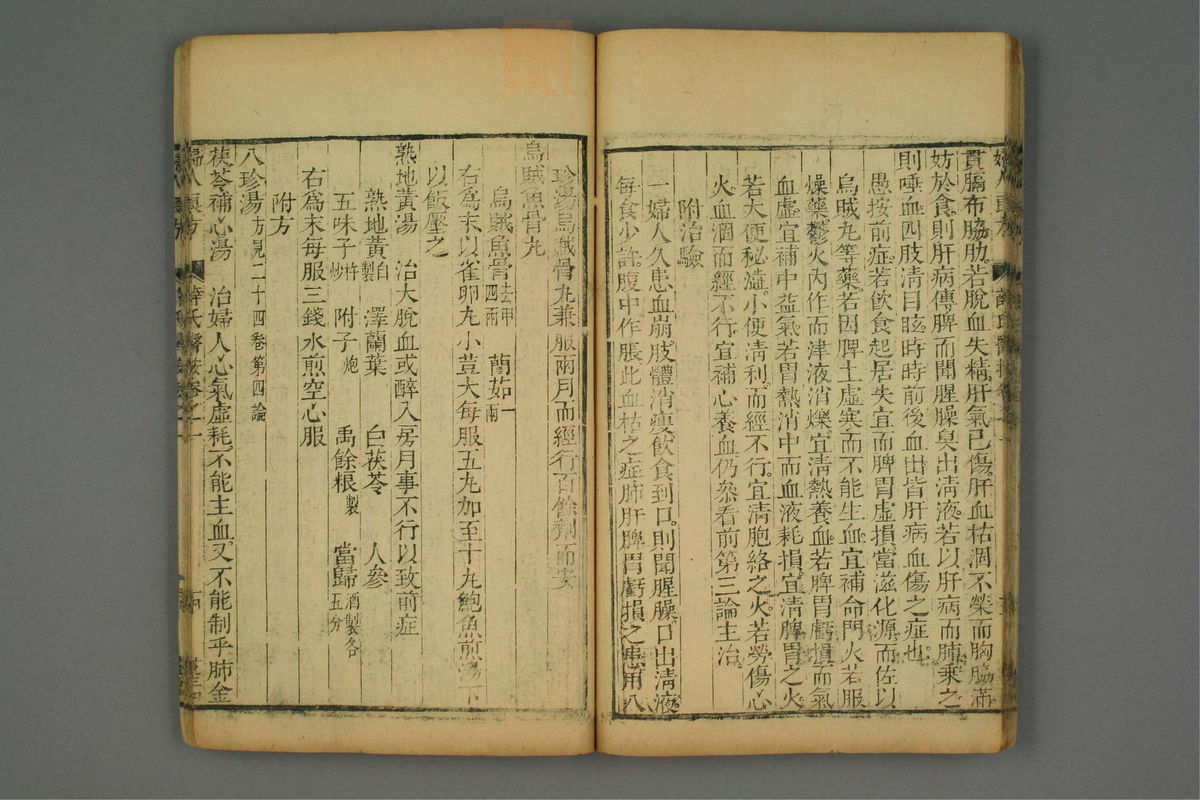 貫膈布脇肋若脫血失精肝氣已傷肝血枯涸不榮而胸脇滿
妨於食則肝病傳脾而聞腥臊臭出清液若以肝病而肺乘之
則唾血四肢清目眩時時前後血出皆肝病血傷之症也
愚按前症若飲食起居失宜而脾胃虛損當滋化源而佐以
烏賊丸等藥若因脾土虛寒而不能生血宜補命門火若服
燥藥鬱火內作而津液消爍宜清熱養血若脾胃虧損而氣
血虛宜補中益氣若胃熱消中而血液耗損宜清脾胃之火
若大便秘澁小便清利而經不行宜清胞絡之火若勞傷心
火血涸而經不行宜補心養血仍叅看前第三論主治
附治驗
一婦人久患血崩肢體消瘦飲食到口則聞腥臊口出清液
每食少許腹中作脹此血枯之症肺肝脾胃虧損之患用八
珍湯烏賊骨丸兼服兩月而經行百餘劑而安
烏賊魚骨丸
烏賊魚骨去甲四兩 藘茹一兩
右爲末以雀卵丸小荳大每服五丸加至十丸鮑魚煎湯下
以飯壓之
熟地黃湯 治大脫血或醉入房月事不行以致前症
熟地黃自製 澤蘭葉 白茯苓 人參
五味子杵炒 附子炮 禹餘粮製 當歸酒製各五分
右爲末每服三錢水煎空心服
附方
八珍湯方見二十四卷第四論
茯苓補心湯 治婦人心氣虛耗不能主血又不能制乎肺金
婦人良方